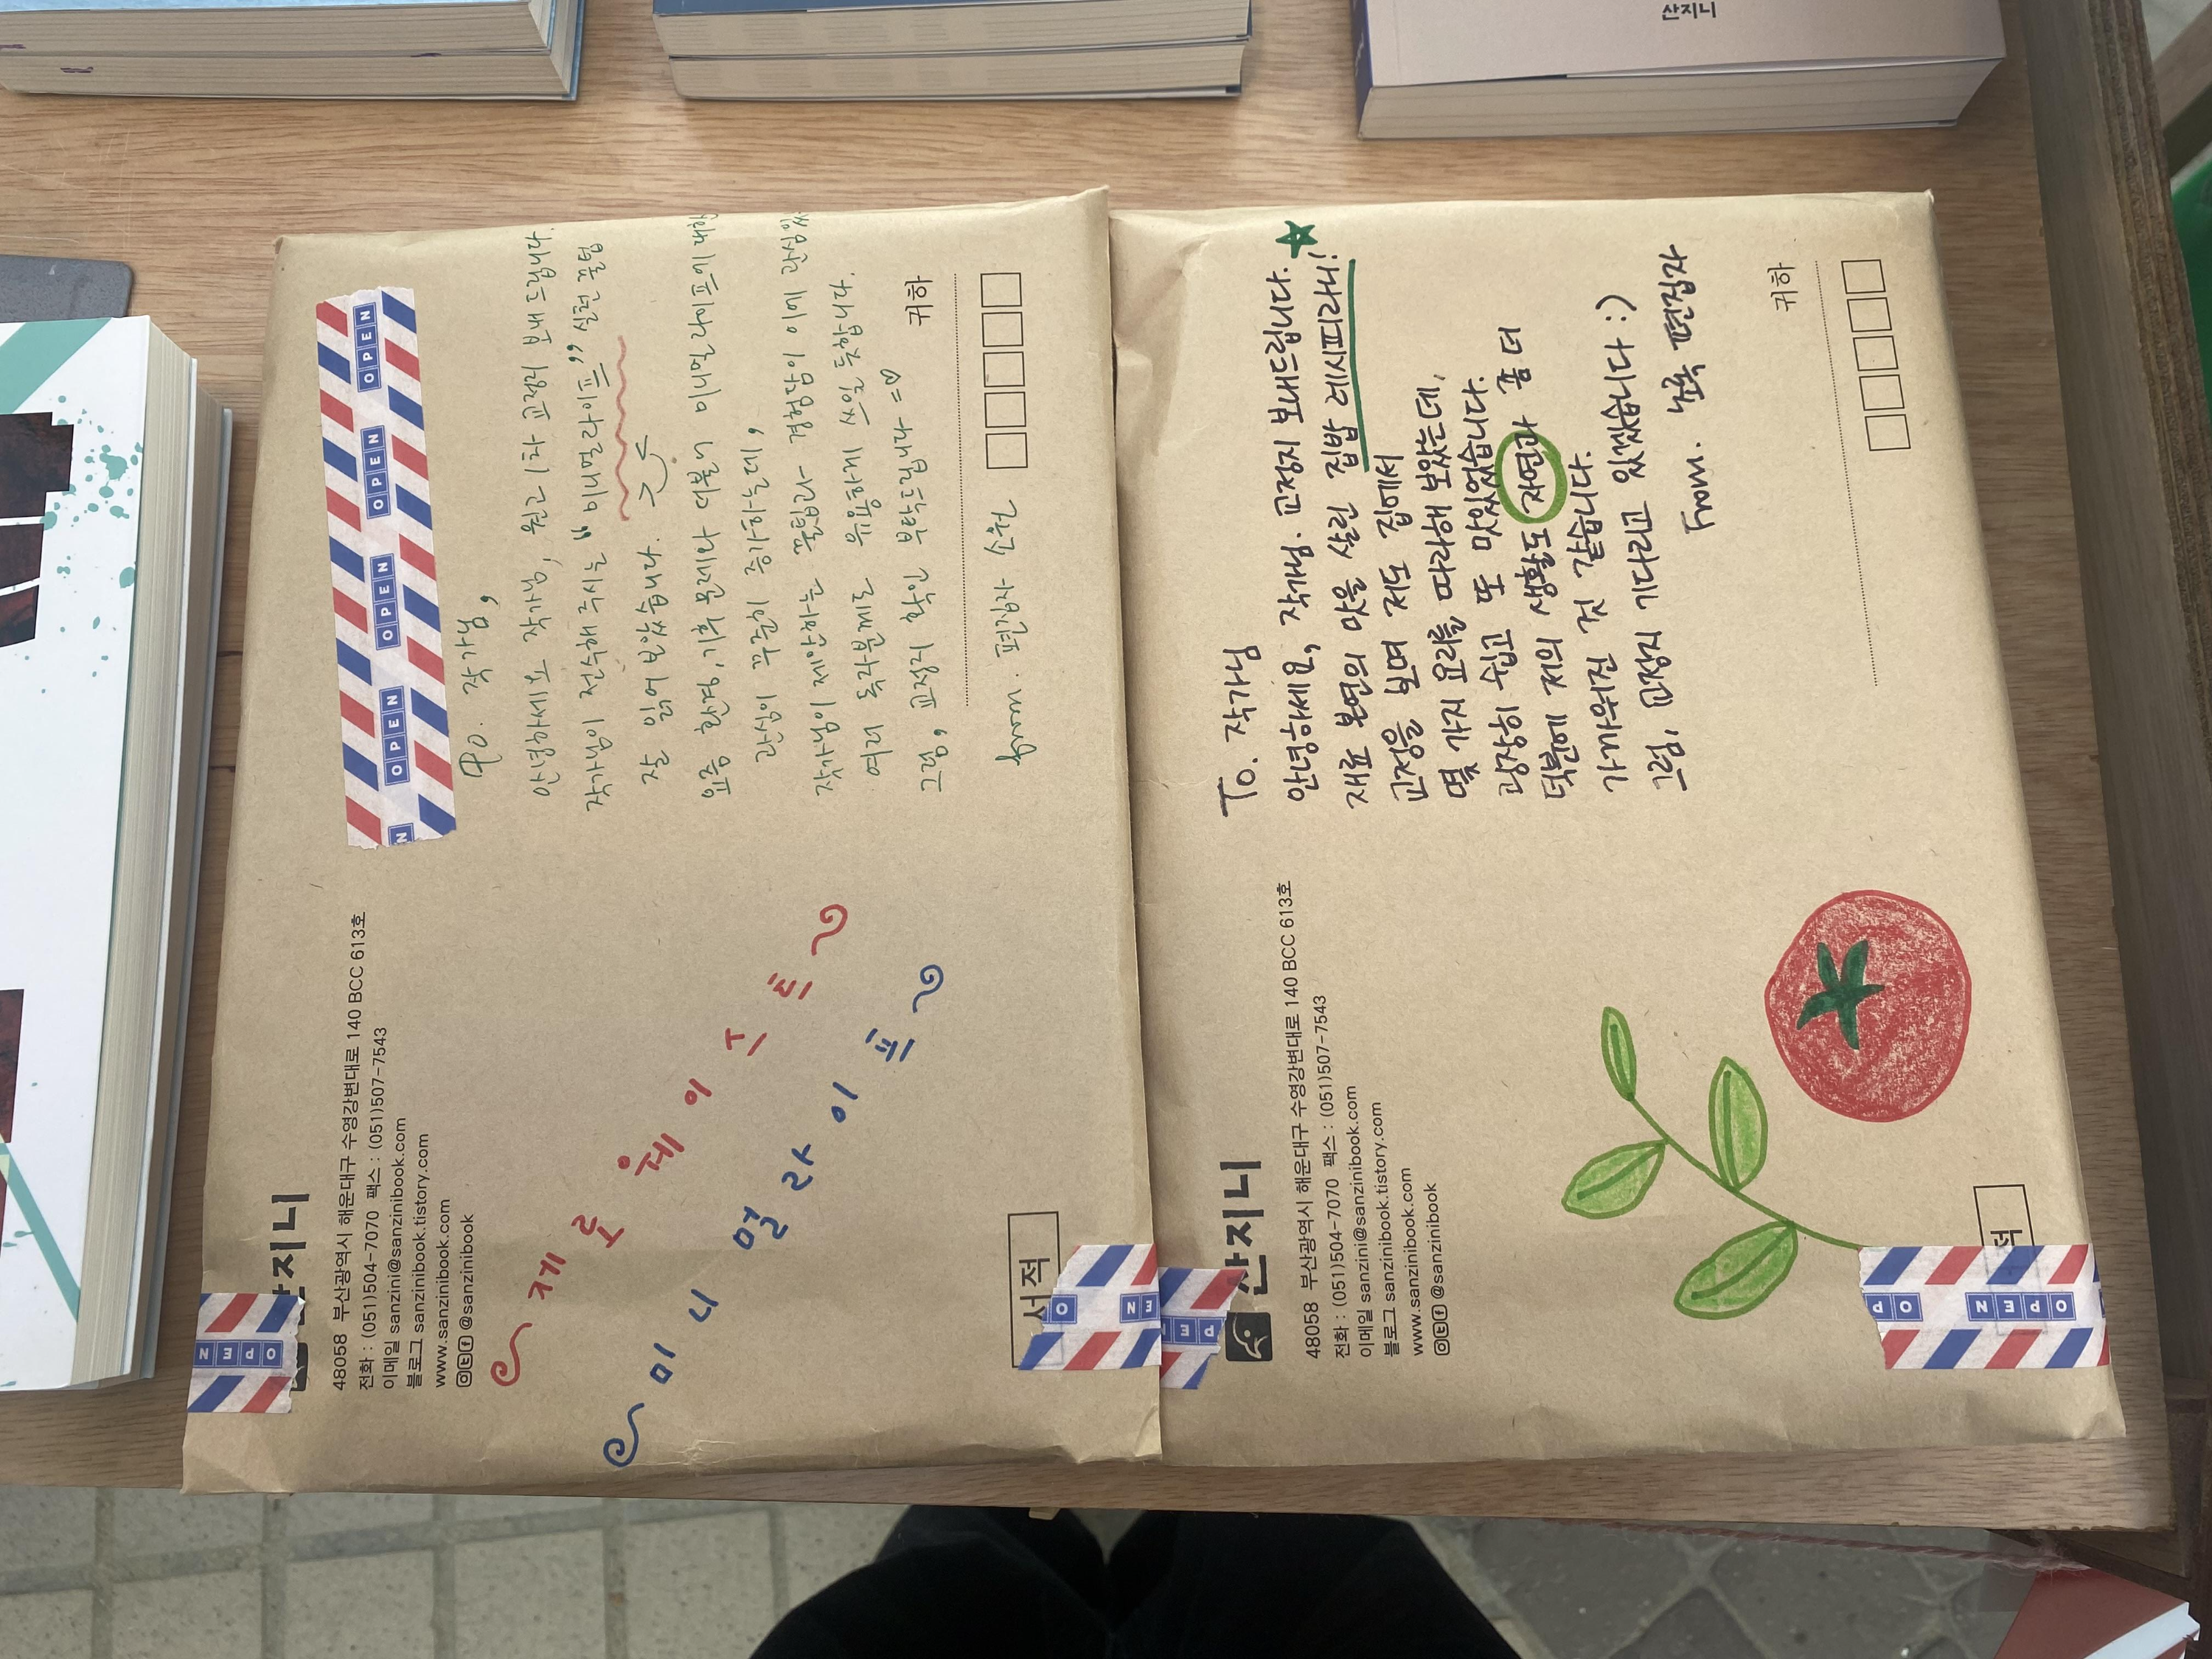 산지니
산지니
48058 부산광역시 해운대구 수영강변대로 140 BCC 613호
전화 : (051)504-7070 팩스 : (051)507-7543
이메일 sanzini@sanzinibook.com
블로그 sanzinibook.tistory.com
www.sanzinibook.com
@sanzinibook
OPEN OPEN OPEN OPEN
To. 작가님,
안녕하세요 작가님, 원고 1차 교정지 보내드립니다.
작가님이 전수해 주시는 "미니멀라이프" 실천 꿀팁
잘 읽어 보았습니다.
요즘 환경, 기후 문제와 더불어 미니멀라이프에 대한
관심이 꾸준히 증가하는데,
작가님이 제안하는 꿀팁과 경험담이 이에 관심있는
여러 독자분께도 유용하게 쓰일 듯합니다.
그럼, 교정지 확인 부탁드립니다 =♡
귀하
from. 편집자 소원
제로웨이스트
미니멀라이프
서적
OPEN
산지니
48058 부산광역시 해운대구 수영강변대로 140 BCC 613호
전화 : (051)504-7070 팩스 : (051)507-7543
이메일 sanzini@sanzinibook.com
블로그 sanzinibook.tistory.com
www.sanzinibook.com
@sanzinibook
To. 작가님
안녕하세요, 작가님. 교정지 보내드립니다.
재료 본연의 맛을 살린 집밥 레시피라니!
교정을 보며 저도 집에서
몇 가지 요리를 따라해 보았는데,
굉장히 쉽고 또 맛있었습니다.
덕분에 저의 생활도 자연과 좀 더
가까워진 것 같습니다.
그럼, 교정지 기다리고 있겠습니다 :)
From. 편집자
귀하
적
OPEN